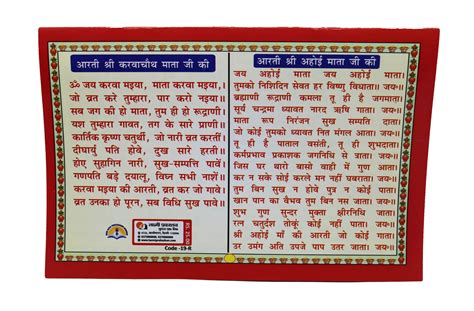 आरती श्री करवाचौथ माता जी की
ॐ जय करवा मइया, माता करवा मइया।
जो व्रत करे तुम्हारा, पार करो नइया।।
सब जग की हो माता, तुम हो रूद्राणी।
यश तुम्हारा गावत, जग के सारे प्राणी।
कार्तिक कृष्ण चतुर्थी, जो नारी व्रत करतीं।
दीर्घायु पति होवे, दुख सारे हरतीं।।
होए सुहागिन नारी, सुख-सम्पत्ति पावें।
गणपति बड़े दयालू, विघ्न सभी नाशें।
करवा मइया की आरती, व्रत कर जो गावे।
व्रत उनका हो पूरन, सब विधि सुख पावे।।
RS.25.00
Code -19-R
आरती श्री अहोई माता जी की
जय अहोई माता जय अहोई माता।
तुमको निशिदिन सेवत हर विष्णु विधाता।। जय॰।।
ब्रह्माणी रूद्राणी कमला तू ही है जगमाता।
सूर्य चन्द्रमा ध्यावत नारद ऋषि गाता। जय॰।।
माता रूप निरंजन सुख सम्पति दाता।
जो कोई तुमको ध्यावत नित मंगल आता। जय॰।।
तू ही है पाताल वसंती, तू ही शुभदाता।
कर्मप्रभाव प्रकाशक जगनिधि से त्राता। जय॰।।
जिस घर थारो बासा वाही में गुण आता।
कर न सके सोई करले मन नहीं घबराता। जय॰।।
तुम बिन सुख न होवे पुत्र न कोई पाता।
खान पान का वैभव तुम बिन नहीं जाता। जय॰।।
शुभ गुण सुन्दर मुक्ता क्षीरनिधि जाता।
रत्न चतुर्दश तोकूं कोई नहीं पाता। जय॰।।
श्री अहोई माँ की आरती जो कोई गाता।
उर उमंग अति उपजे पाप उतर जाता। जय॰।।